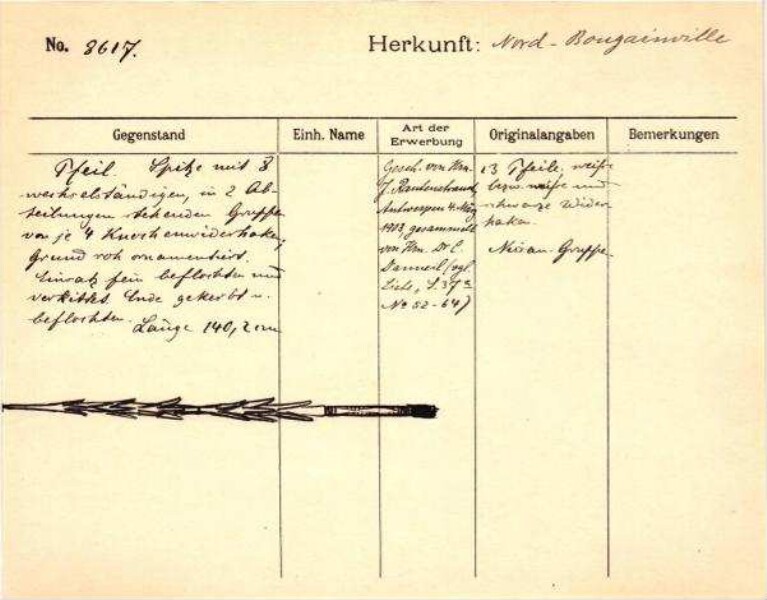 No. 8617.
Herkunft: Nord-Bougainville
Gegenstand
Einh. Name
Art der
Erwerbung
Originalangaben
Bemerkungen
Pfeil. Spitze mit 8
wechselständigen, in 2 Ab-
teilungen stehenden Gruppen
von je 4 Knochenwiderhaken;
Grund roh ornamentiert.
Einsatz fein beflochten und
verkittet. Ende gekerbt u.
beflochten.
Länge 140,2 cm
Gesch. von Hrn.
J. Rautenstrauch,
Antwerpen 4. März
1903, gesammelt
von Hrn. Dr. E.
Danneil (vgl.
Liste, S. 37
No 52-64)
13 Pfeile, weiße
bezw. weiße und
schwarze Wider-
haken.
Nissan-Gruppe.